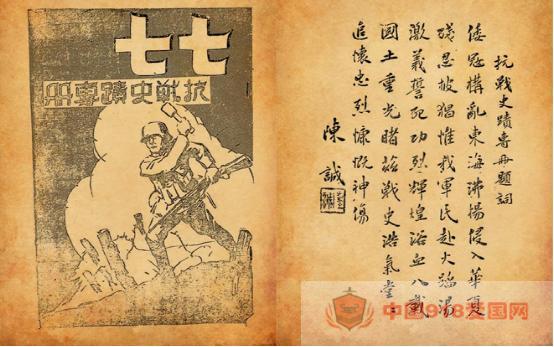 七七
抗戰史蹟專冊
抗戰史蹟專冊題詞
倭寇構亂東海沸揚侵入華夏
殘忍披猖惟我軍民赴火蹈湯
激義誓死功烈輝煌浴血八載
國土重光睹茲戰史浩氣堂々
追懷忠烈慷慨神傷
陳誠
中国918爱国网